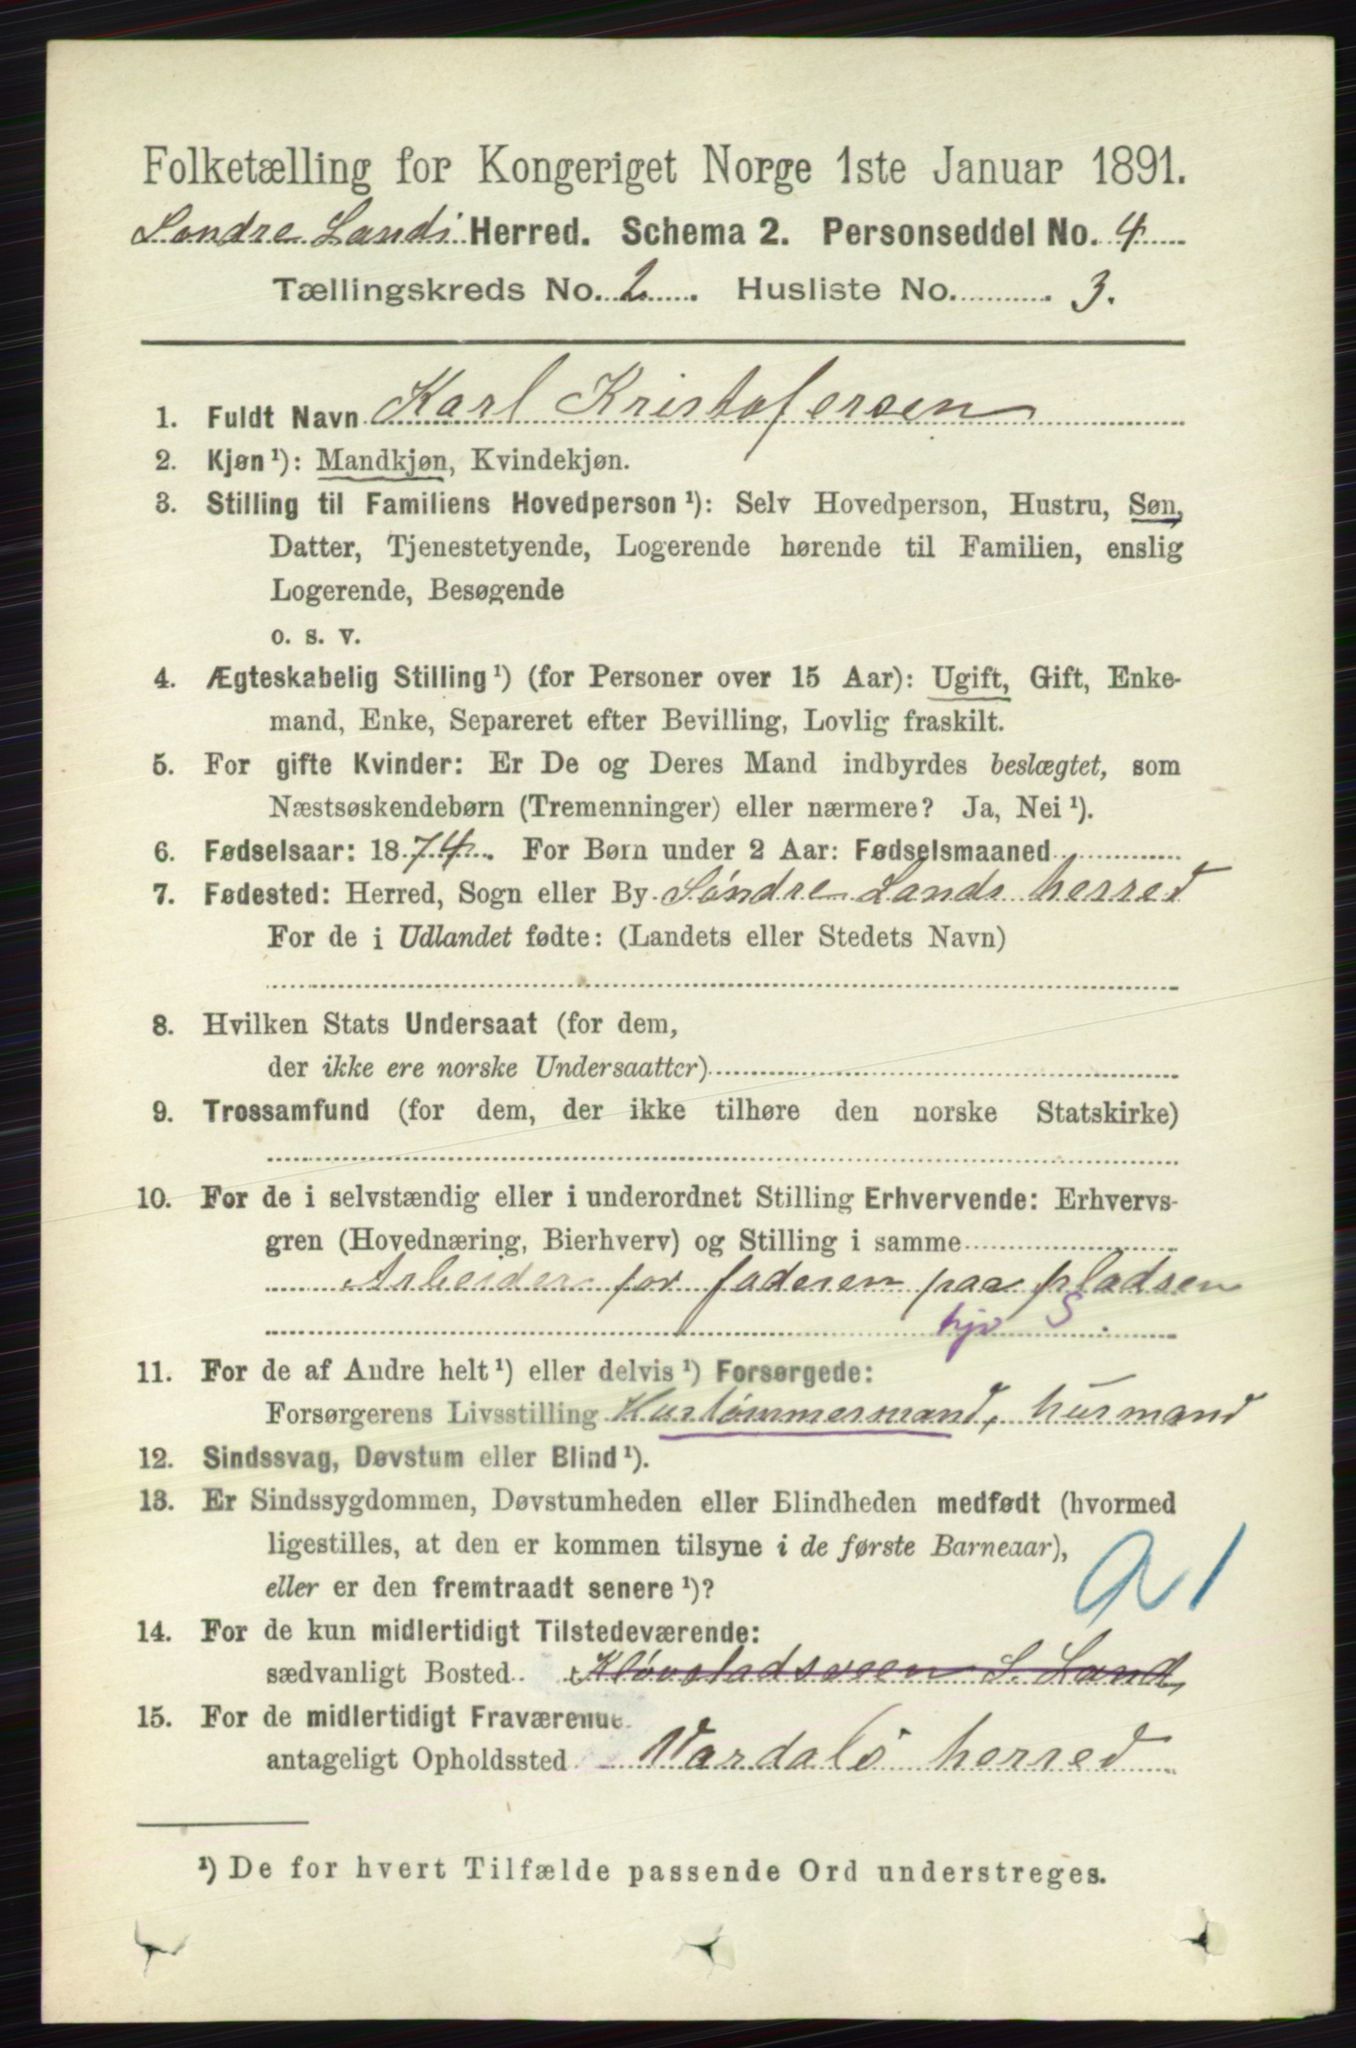 Folketælling for Kongeriget Norge 1ste Januar 1891.
Søndre Lands Herred. Schema 2. Personseddel No. 4
Tællingskreds No. 2. Husliste No. 3.
1. Fuldt Navn Karl Kristofersen
2. Kjøn¹): Mandkjøn, Kvindekjøn.
3. Stilling til Familiens Hovedperson¹): Selv Hovedperson, Hustru, Søn,
Datter, Tjenestetyende, Logerende hørende til Familien, enslig
Logerende, Besøgende
o. s. v.
4. Ægteskabelig Stilling¹) (for Personer over 15 Aar): Ugift, Gift, Enke-
mand, Enke, Separeret efter Bevilling, Lovlig fraskilt.
5. For gifte Kvinder: Er De og Deres Mand indbyrdes beslægtet, som
Næstsøskendebørn (Tremenninger) eller nærmere? Ja, Nei¹).
6. Fødselsaar: 1874. For Børn under 2 Aar: Fødselsmaaned
7. Fødested: Herred, Sogn eller By Søndre Lands herred
For de i Udlandet fødte: (Landets eller Stedets Navn)
8. Hvilken Stats Undersaat (for dem,
der ikke ere norske Undersaatter)
9. Trossamfund (for dem, der ikke tilhøre den norske Statskirke)
10. For de i selvstændig eller i underordnet Stilling Erhvervende: Erhvervs-
gren (Hovednæring, Bierhverv) og Stilling i samme
Arbeider for faderen paa pladsen
hjv S.
11. For de af Andre helt¹) eller delvis¹) Forsørgede:
Forsørgerens Livsstilling Hustømmermand, husmand
12. Sindssvag, Døvstum eller Blind¹).
13. Er Sindssygdommen, Døvstumheden eller Blindheden medfødt (hvormed
ligestilles, at den er kommen tilsyne i de første Barneaar),
eller er den fremtraadt senere¹)?
a1
14. For de kun midlertidigt Tilstedeværende:
sædvanligt Bosted S. Land
15. For de midlertidigt Fraværende
antageligt Opholdssted Vardals herred
¹) De for hvert Tilfælde passende Ord understreges.